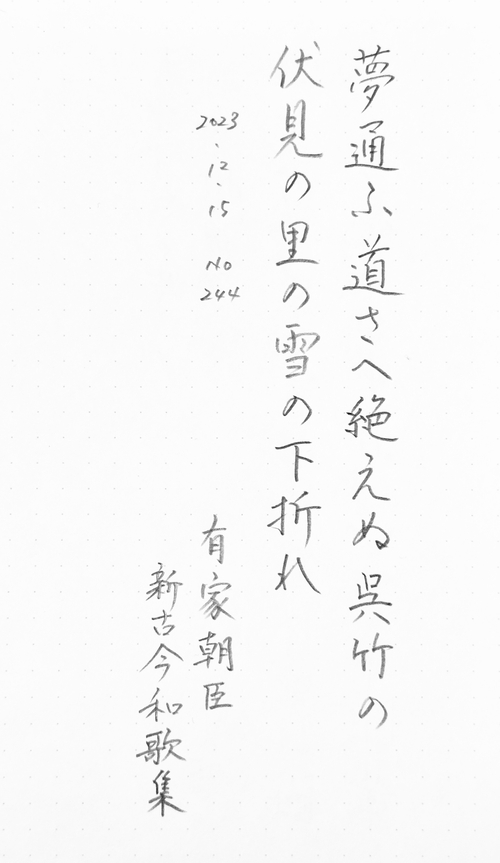 夢通ふ道さへ絶えぬ呉竹の
伏見の里の雪の下折れ
2023.12.15 No 244
有家朝臣
新古今和歌集